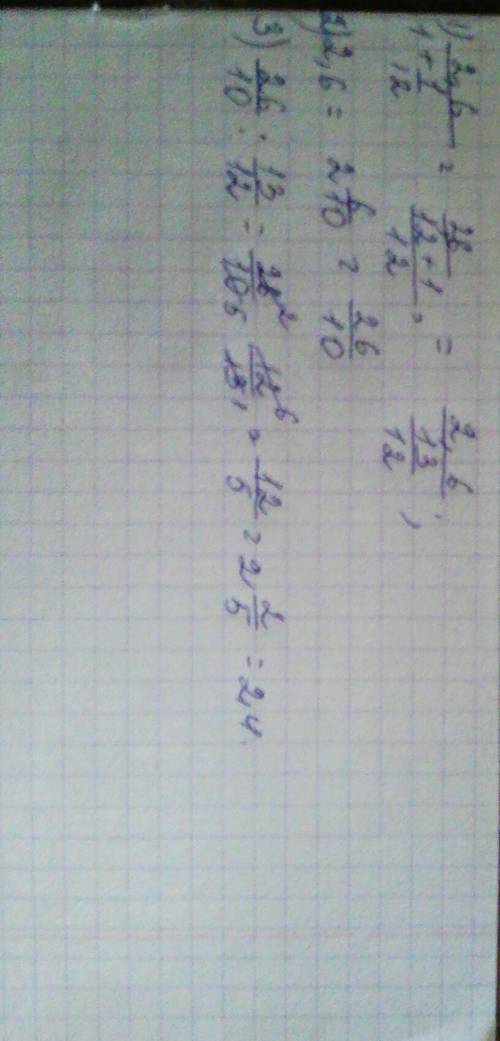 1) 2,6/(1 + 1/12) = 2,6/((12 + 1)/12) = 2,6/(13/12);
2) 2,6 = 2 6/10 = 26/10
3) 26/10 : 13/12 = 26²/10₅ · 12⁶/13₁ = 12/5 = 2 2/5 = 2,4.